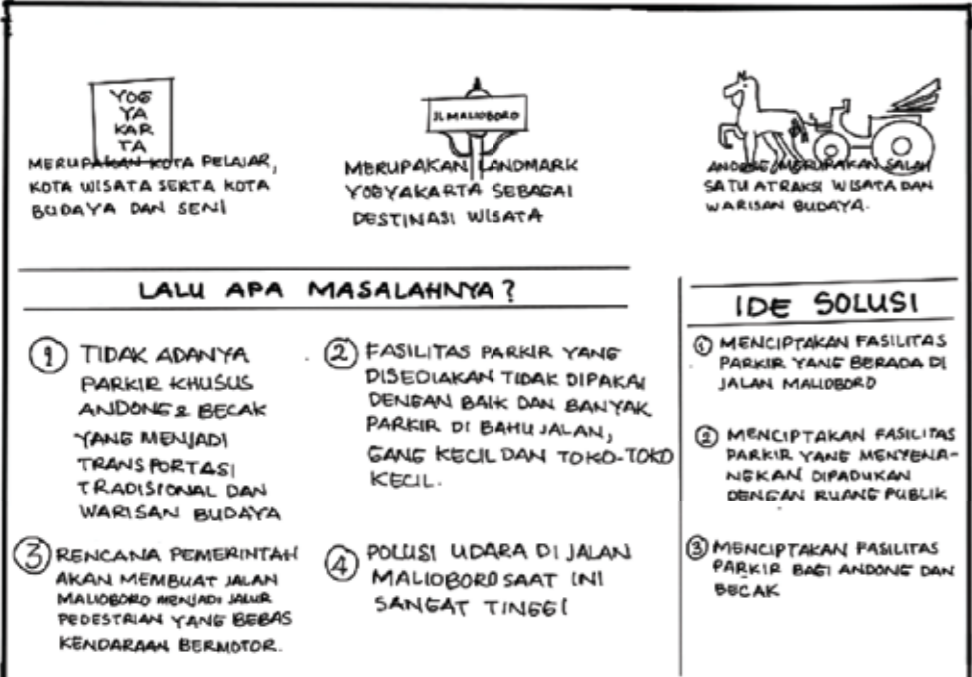 YOG
YA
KAR
TA
MERUPAKAN KOTA PELAJAR,
KOTA WISATA SERTA KOTA
BUDAYA DAN SENI
JL.MALIOBORO
MERUPAKAN LANDMARK
YOGYAKARTA SEBAGAI
DESTINASI WISATA
ANDONG, MERUPAKAN SALAH
SATU ATRAKSI WISATA DAN
WARISAN BUDAYA.
LALU APA MASALAHNYA?
1 TIDAK ADANYA
PARKIR KHUSUS
ANDONG & BECAK
YANG MENJADI
TRANSPORTASI
TRADISIONAL DAN
WARISAN BUDAYA
2 FASILITAS PARKIR YANG
DISEDIAKAN TIDAK DIPAKAI
DENGAN BAIK DAN BANYAK
PARKIR DI BAHU JALAN,
GANG KECIL DAN TOKO-TOKO
KECIL.
3 RENCANA PEMERINTAH
AKAN MEMBUAT JALAN
MALIOBORO MENJADI JALUR
PEDESTRIAN YANG BEBAS
KENDARAAN BERMOTOR.
4 POLUSI UDARA DI JALAN
MALIOBORO SAAT INI
SANGAT TINGGI
IDE SOLUSI
1 MENCIPTAKAN FASILITAS
PARKIR YANG BERADA DI
JALAN MALIOBORO
2 MENCIPTAKAN FASILITAS
PARKIR YANG MENYENA-
NGKAN DIPADUKAN
DENGAN RUANG PUBLIK
3 MENCIPTAKAN FASILITAS
PARKIR BAGI ANDONG DAN
BECAK